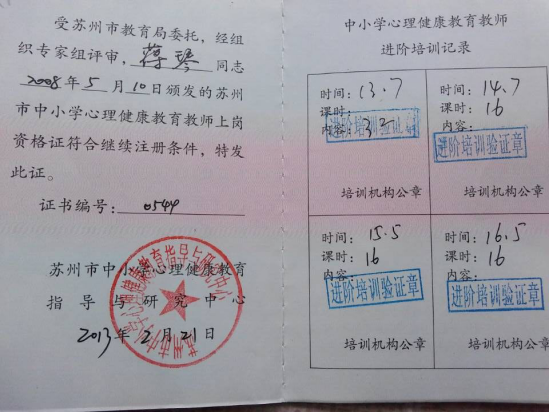 受苏州市教育局委托，经组
织专家组评审，蒋琴 同志
2008年5月10日颁发的苏州
市中小学心理健康教育教师上岗
资格证符合继续注册条件，特发
此证。
证书编号：0544
苏州市中小学心理健康教育
指导与研究中心
2013年2月21日
中小学心理健康教育教师
进阶培训记录
时间：13.7
课时：
内容：
进阶培训验证章
培训机构公章
时间：14.7
课时：16
内容：
进阶培训验证章
培训机构公章
时间：15.5
课时：16
内容：
进阶培训验证章
培训机构公章
时间：16.5
课时：16
内容：
进阶培训验证章
培训机构公章